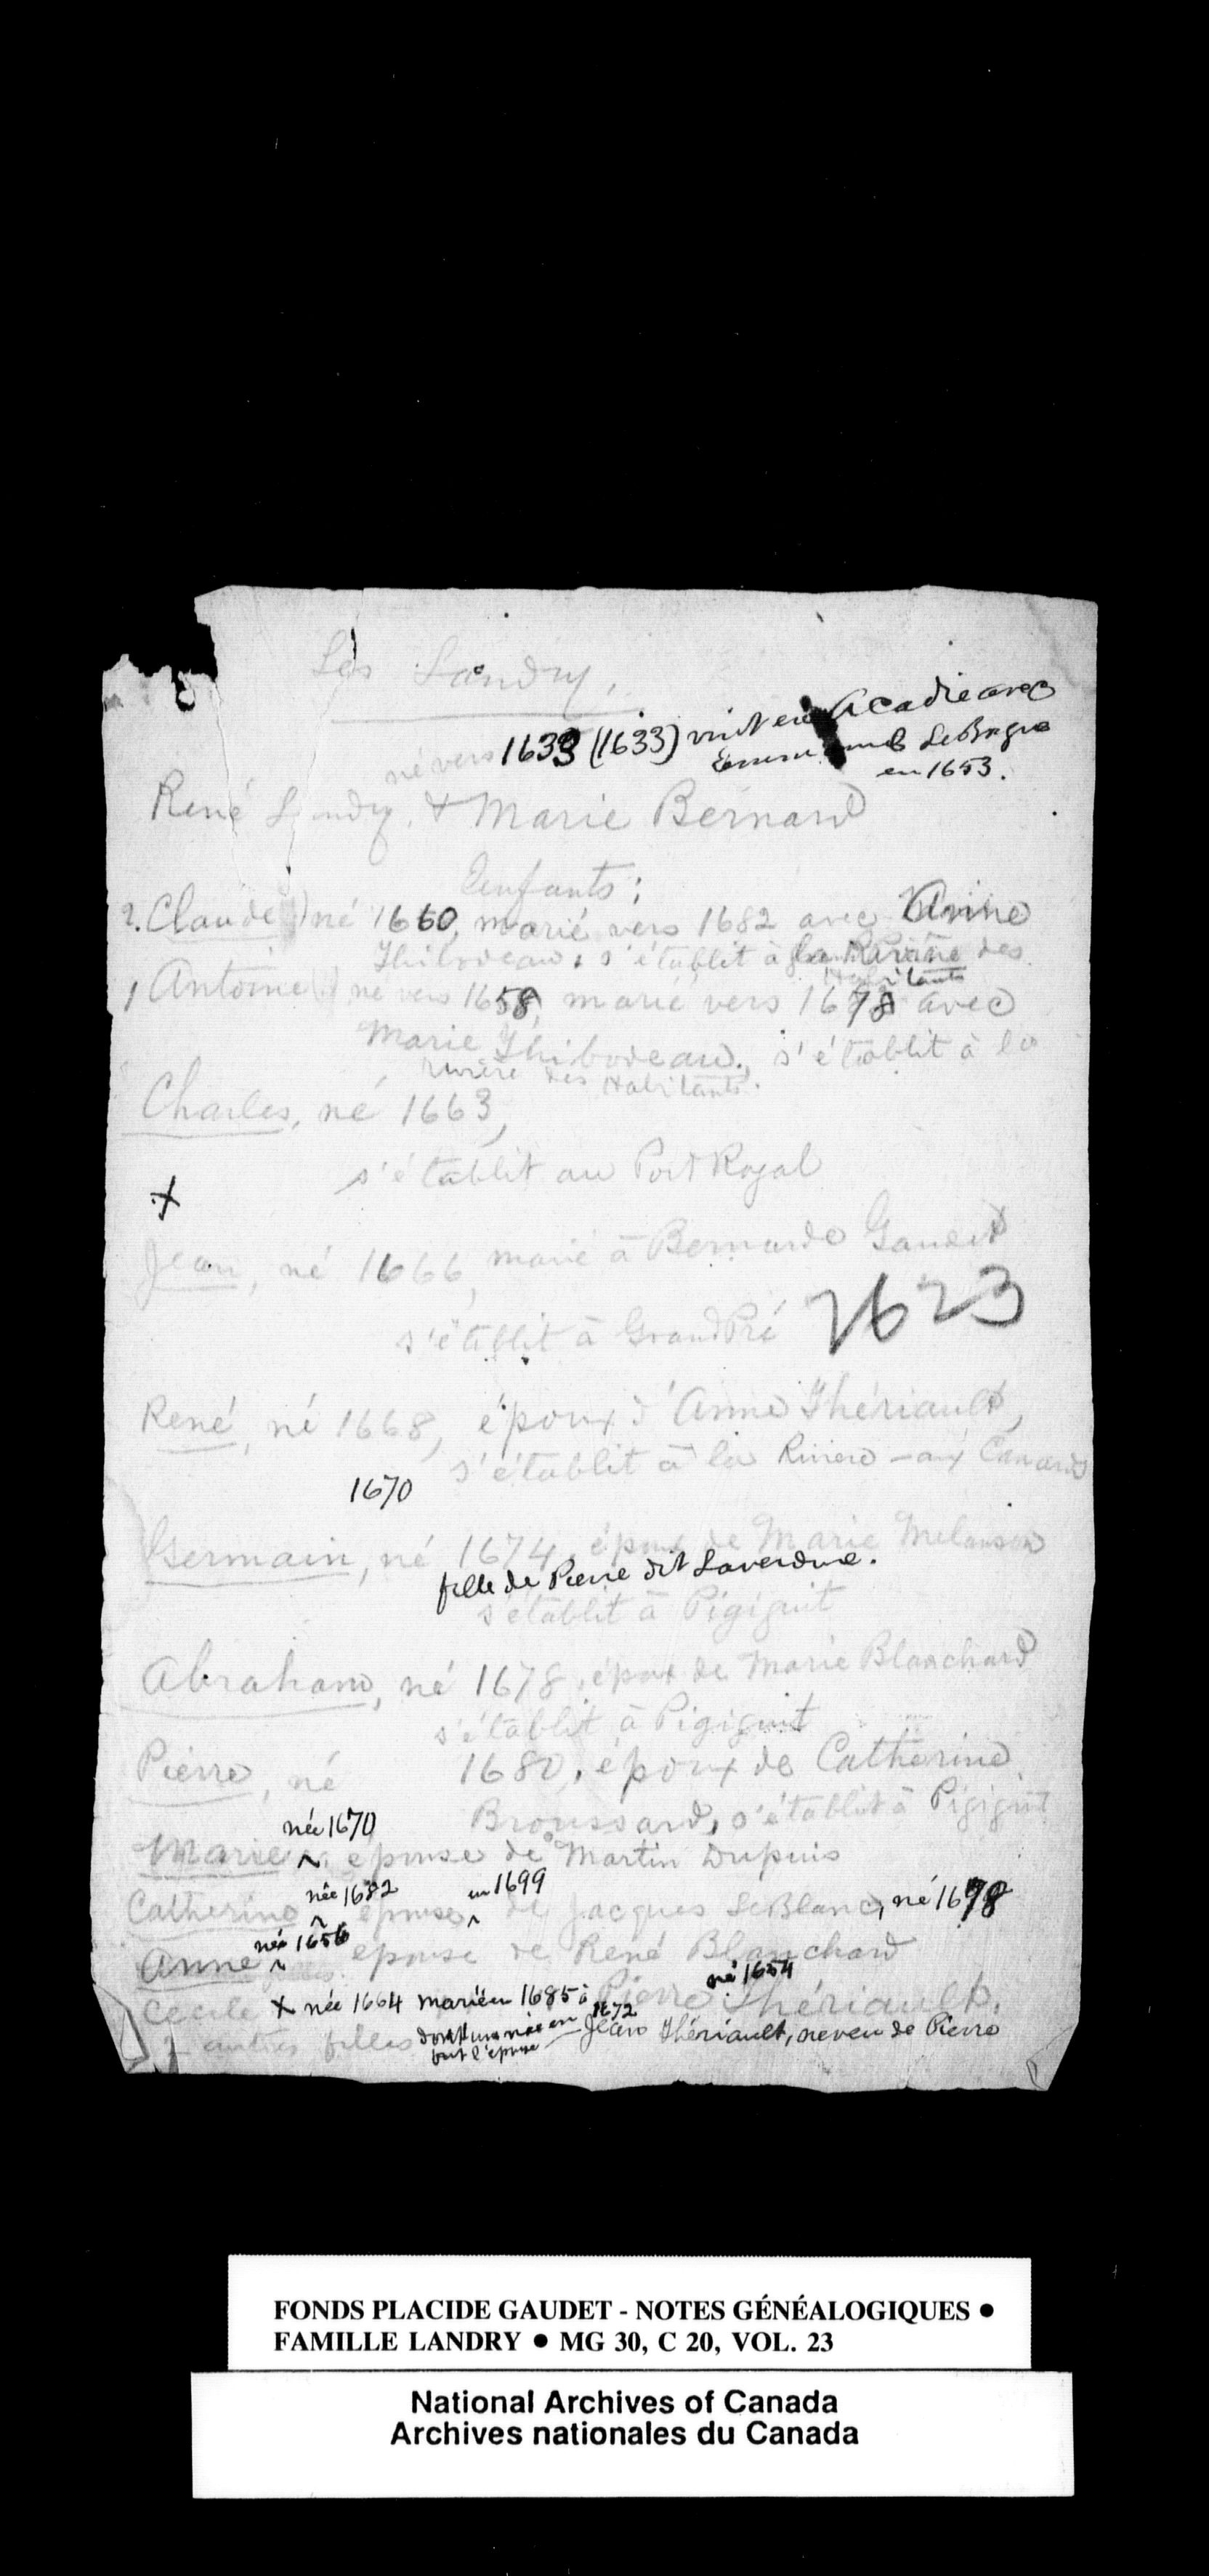 Les Landry,
né vers 1633 (1633) vint en Acadie avec
Emmanuel LeBorgne
en 1653.
René Landry, & Marie Bernard
Enfants:
2. Claude né 1660, marié vers 1682 avec Anne
Thibodeau, s'établit à la Rivière des
Habitants
1 Antoine né vers 1658, marié vers 1678 avec
Marie Thibodeau, s'établit à la
rivière des Habitants.
Charles, né 1663,
s'établit au Port Royal
+
Jean, né 1666, marié à Bernarde Gaudet
2623
s'établit à Grand Pré
René, né 1668, époux d'Anne Thériault,
s'établit à la Riviere-aux Canards
1670
Germain, né 1674, époux de Marie Melanson
fille de Pierre dit Laverdure.
s'établit à Pigiguit
Abraham, né 1678, époux de Marie Blanchard
s'établit à Pigiguit
Pierre, né 1680, époux de Catherine
Broussard, s'établit à Pigiguit
née 1670
Marie ^ epouse de Martin Dupuis
née 1682 en 1699
Catherine ^ épouse ^ de Jacques LeBlanc, né 1678
née 1656
Anne ^ epouse de René Blanchard
né 1654
Cécile + née 1664 mariée en 1685 à Pierre Thériault.
2 autres filles dont une née en 1672
fut l'épouse Jean Thériault, neveu de Pierre
FONDS PLACIDE GAUDET - NOTES GÉNÉALOGIQUES ●
FAMILLE LANDRY ● MG 30, C 20, VOL. 23
National Archives of Canada
Archives nationales du Canada